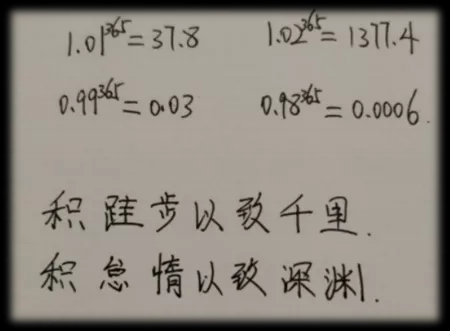 1.01^365=37.8 1.02^365=1377.4
0.99^365=0.03 0.98^365=0.0006.
积跬步以致千里.
积怠惰以致深渊.